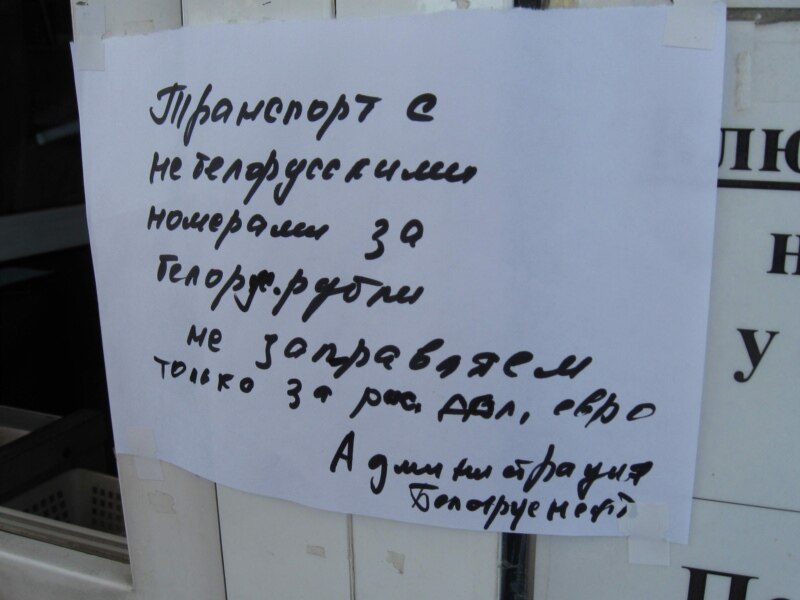 Транспорт с
не белорусскими
номерами за
белорус. рубли
не заправляем
только за рос, дол, евро
Администрация
Белоруснефть
лю
н
у
По